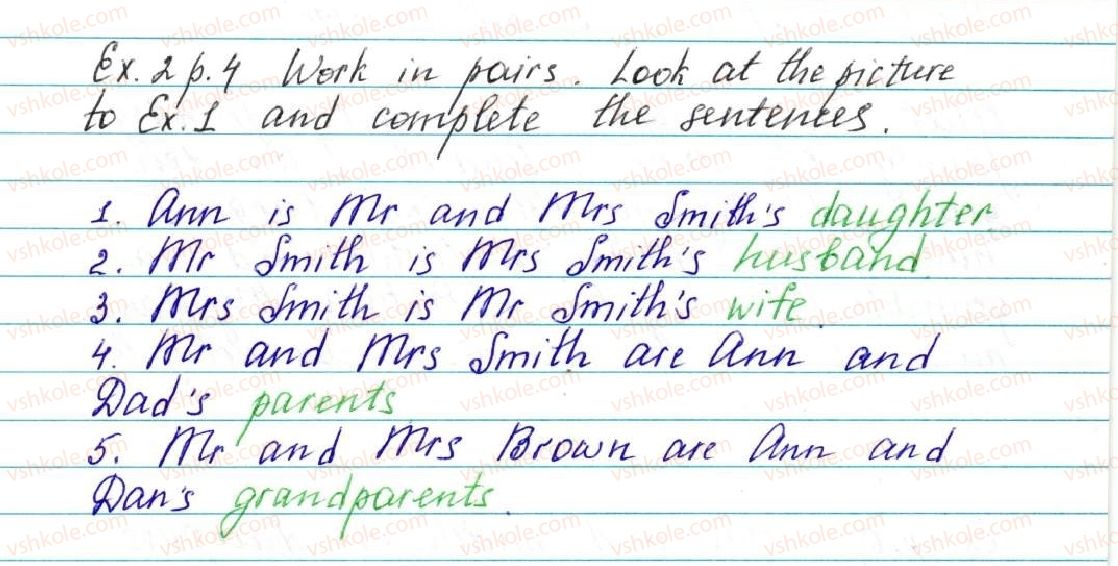 Ex. 2 p. 4 Work in pairs. Look at the picture
to Ex. 1 and complete the sentences.
1. Ann is Mr and Mrs Smith's daughter
2. Mr Smith is Mrs Smith's husband
3. Mrs Smith is Mr Smith's wife.
4. Mr and Mrs Smith are Ann and
Dad's parents
5. Mr and Mrs Brown are Ann and
Dan's grandparents.